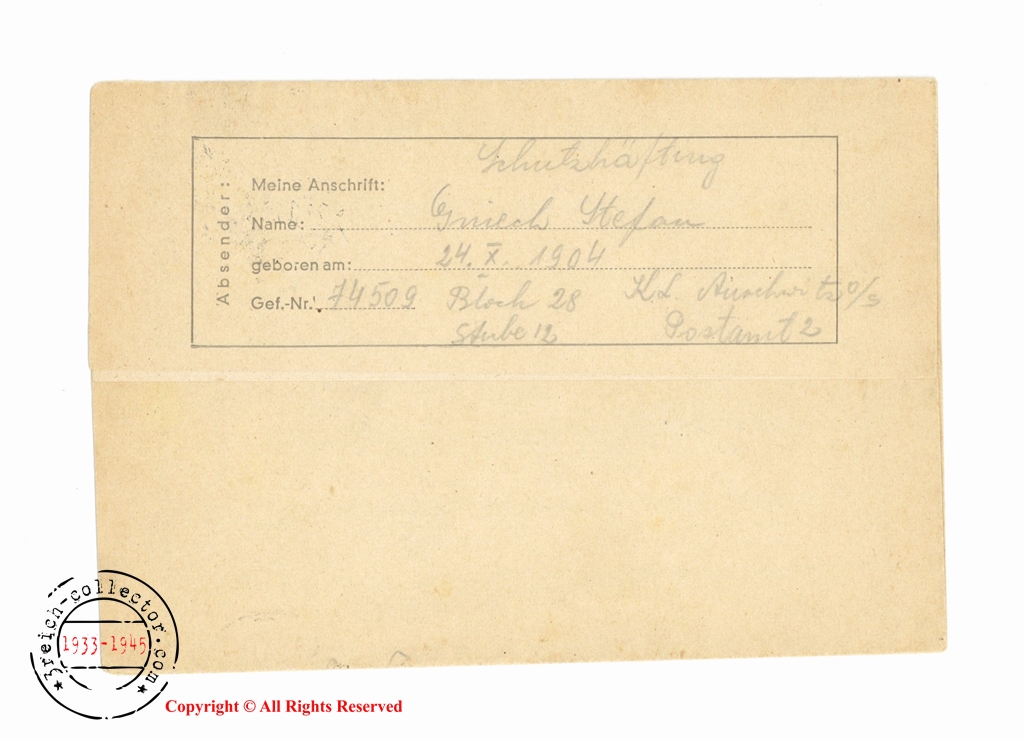 Absender:
Schutzhäftling
Meine Anschrift:
Name: Gniech Stefan
geboren am: 24. X. 1904
Gef.-Nr. 74509 Block 28 K.L. Auschwitz O/S
Stube 12 Postamt 2
3reich-collector.com
1933-1945
Copyright © All Rights Reserved